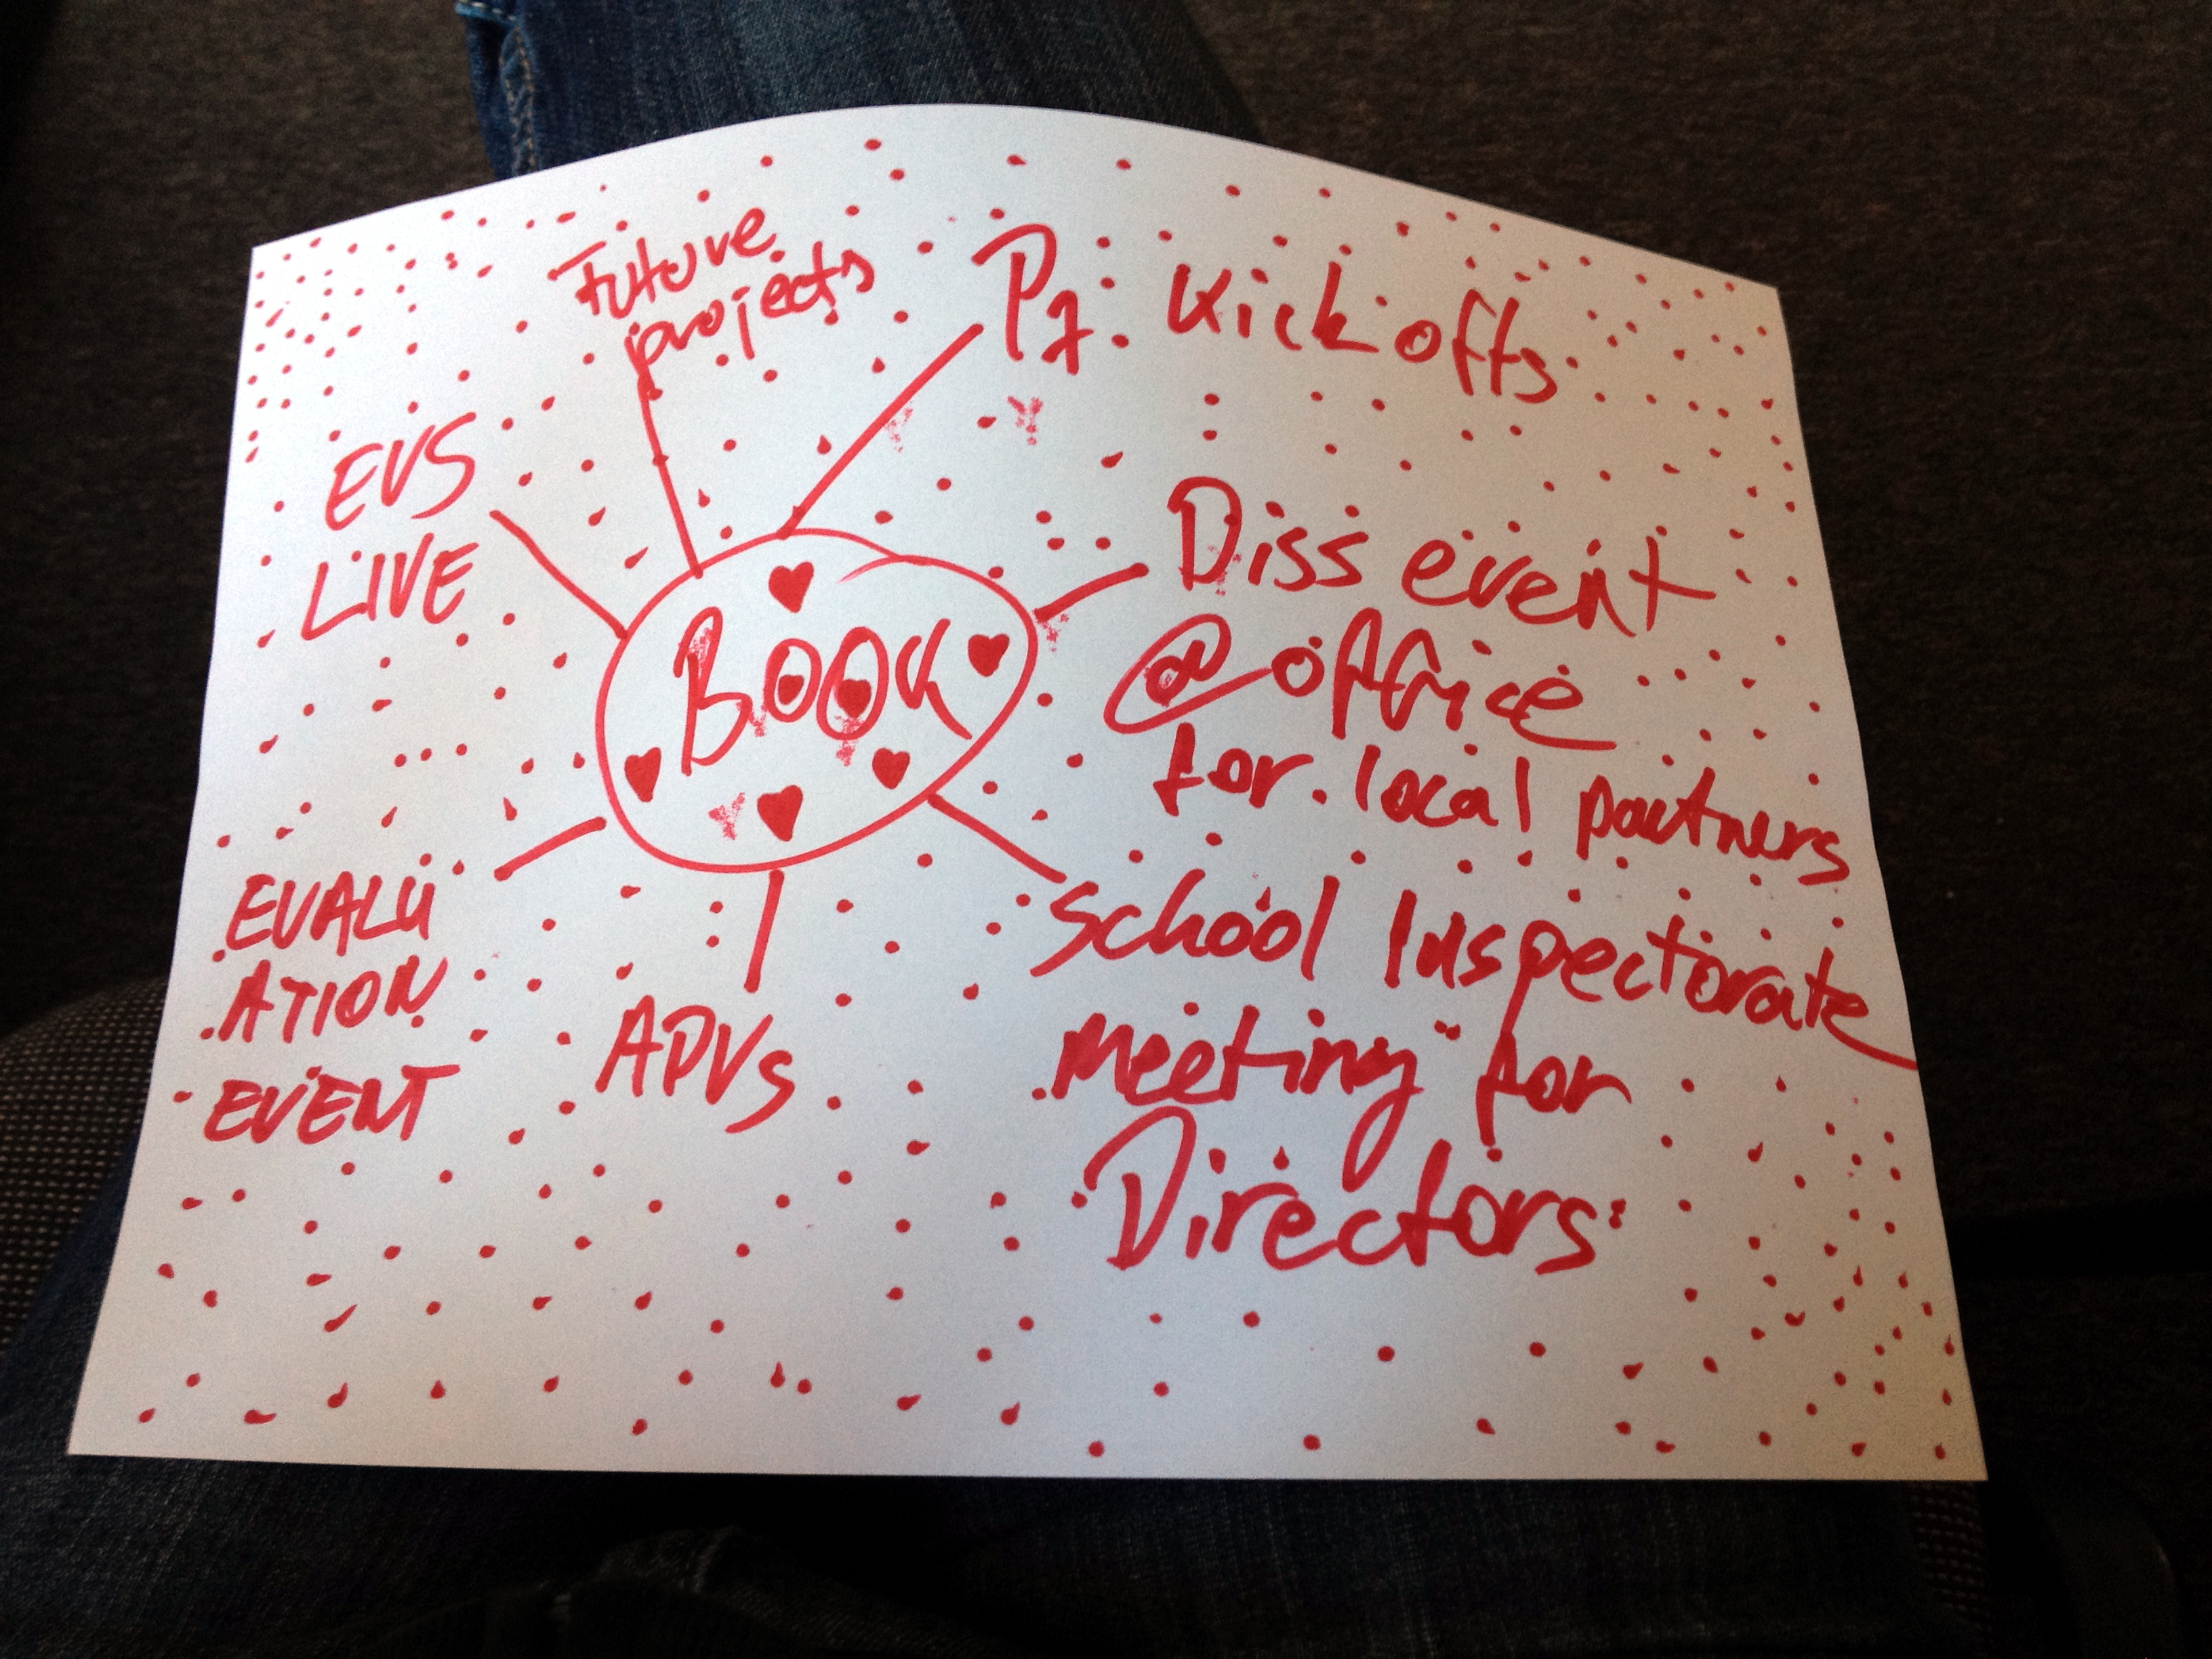 Future
projects
Pj. Kick offs
EVS
LIVE
BOOK
Diss event
@ office
for local partners
EVALU
ATION
EVENT
APVs
School Inspectorate
meeting for
Directors